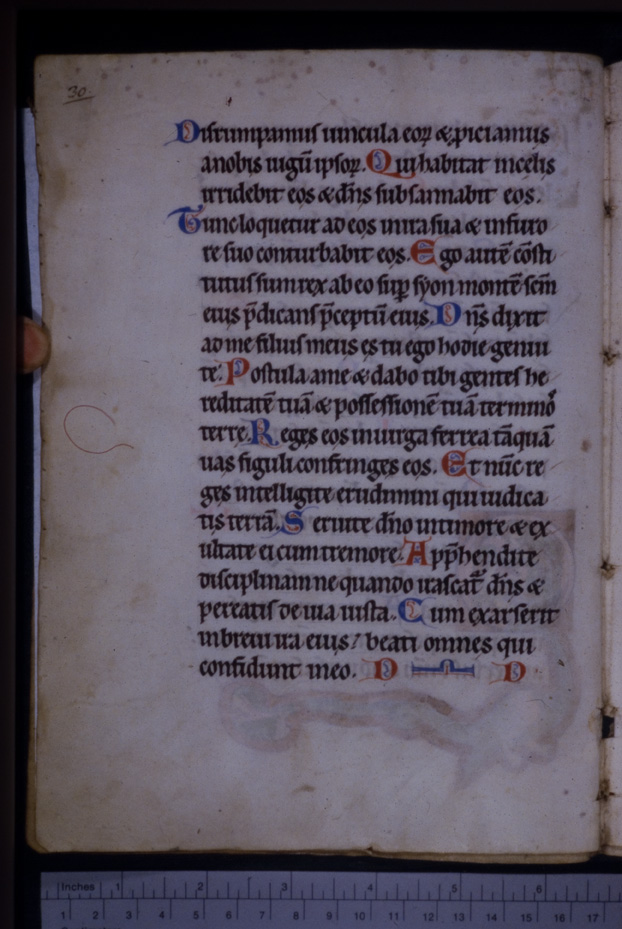 30.
Disrumpamus uincula eoꝝ & ꝓiciamus
anobis iugū ipsoꝝ. Qui habitat incelis
irridebit eos & dn̄s subsannabit eos.
Tunc loquetur ad eos in ira sua & infuro
re suo conturbabit eos. Ego autē cōsti
tutus sum rex ab eo sup̱ syon montē sc̄m
eius p̄dicans p̄ceptū eius. Dn̄s dixit
ad me filius meus es tu ego hodie genui
te. Postula a me & dabo tibi gentes he
reditatē tuā & possessionē tuā terminos
terre. Reges eos in uirga ferrea tāquā
uas figuli confringes eos. Et nūc re
ges intelligite erudimini qui iudica
tis terrā. Seruite dn̄o in timore & ex
ultate ei cum tremore. App̄hendite
disciplinam ne quando irascat᷑ dn̄s &
pereatis de uia iusta. Cum exarserit
in breui ira eius / beati omnes qui
confidunt in eo. D D
Inches 1 2 3 4 5 6
1 2 3 4 5 6 7 8 9 10 11 12 13 14 15 16 17